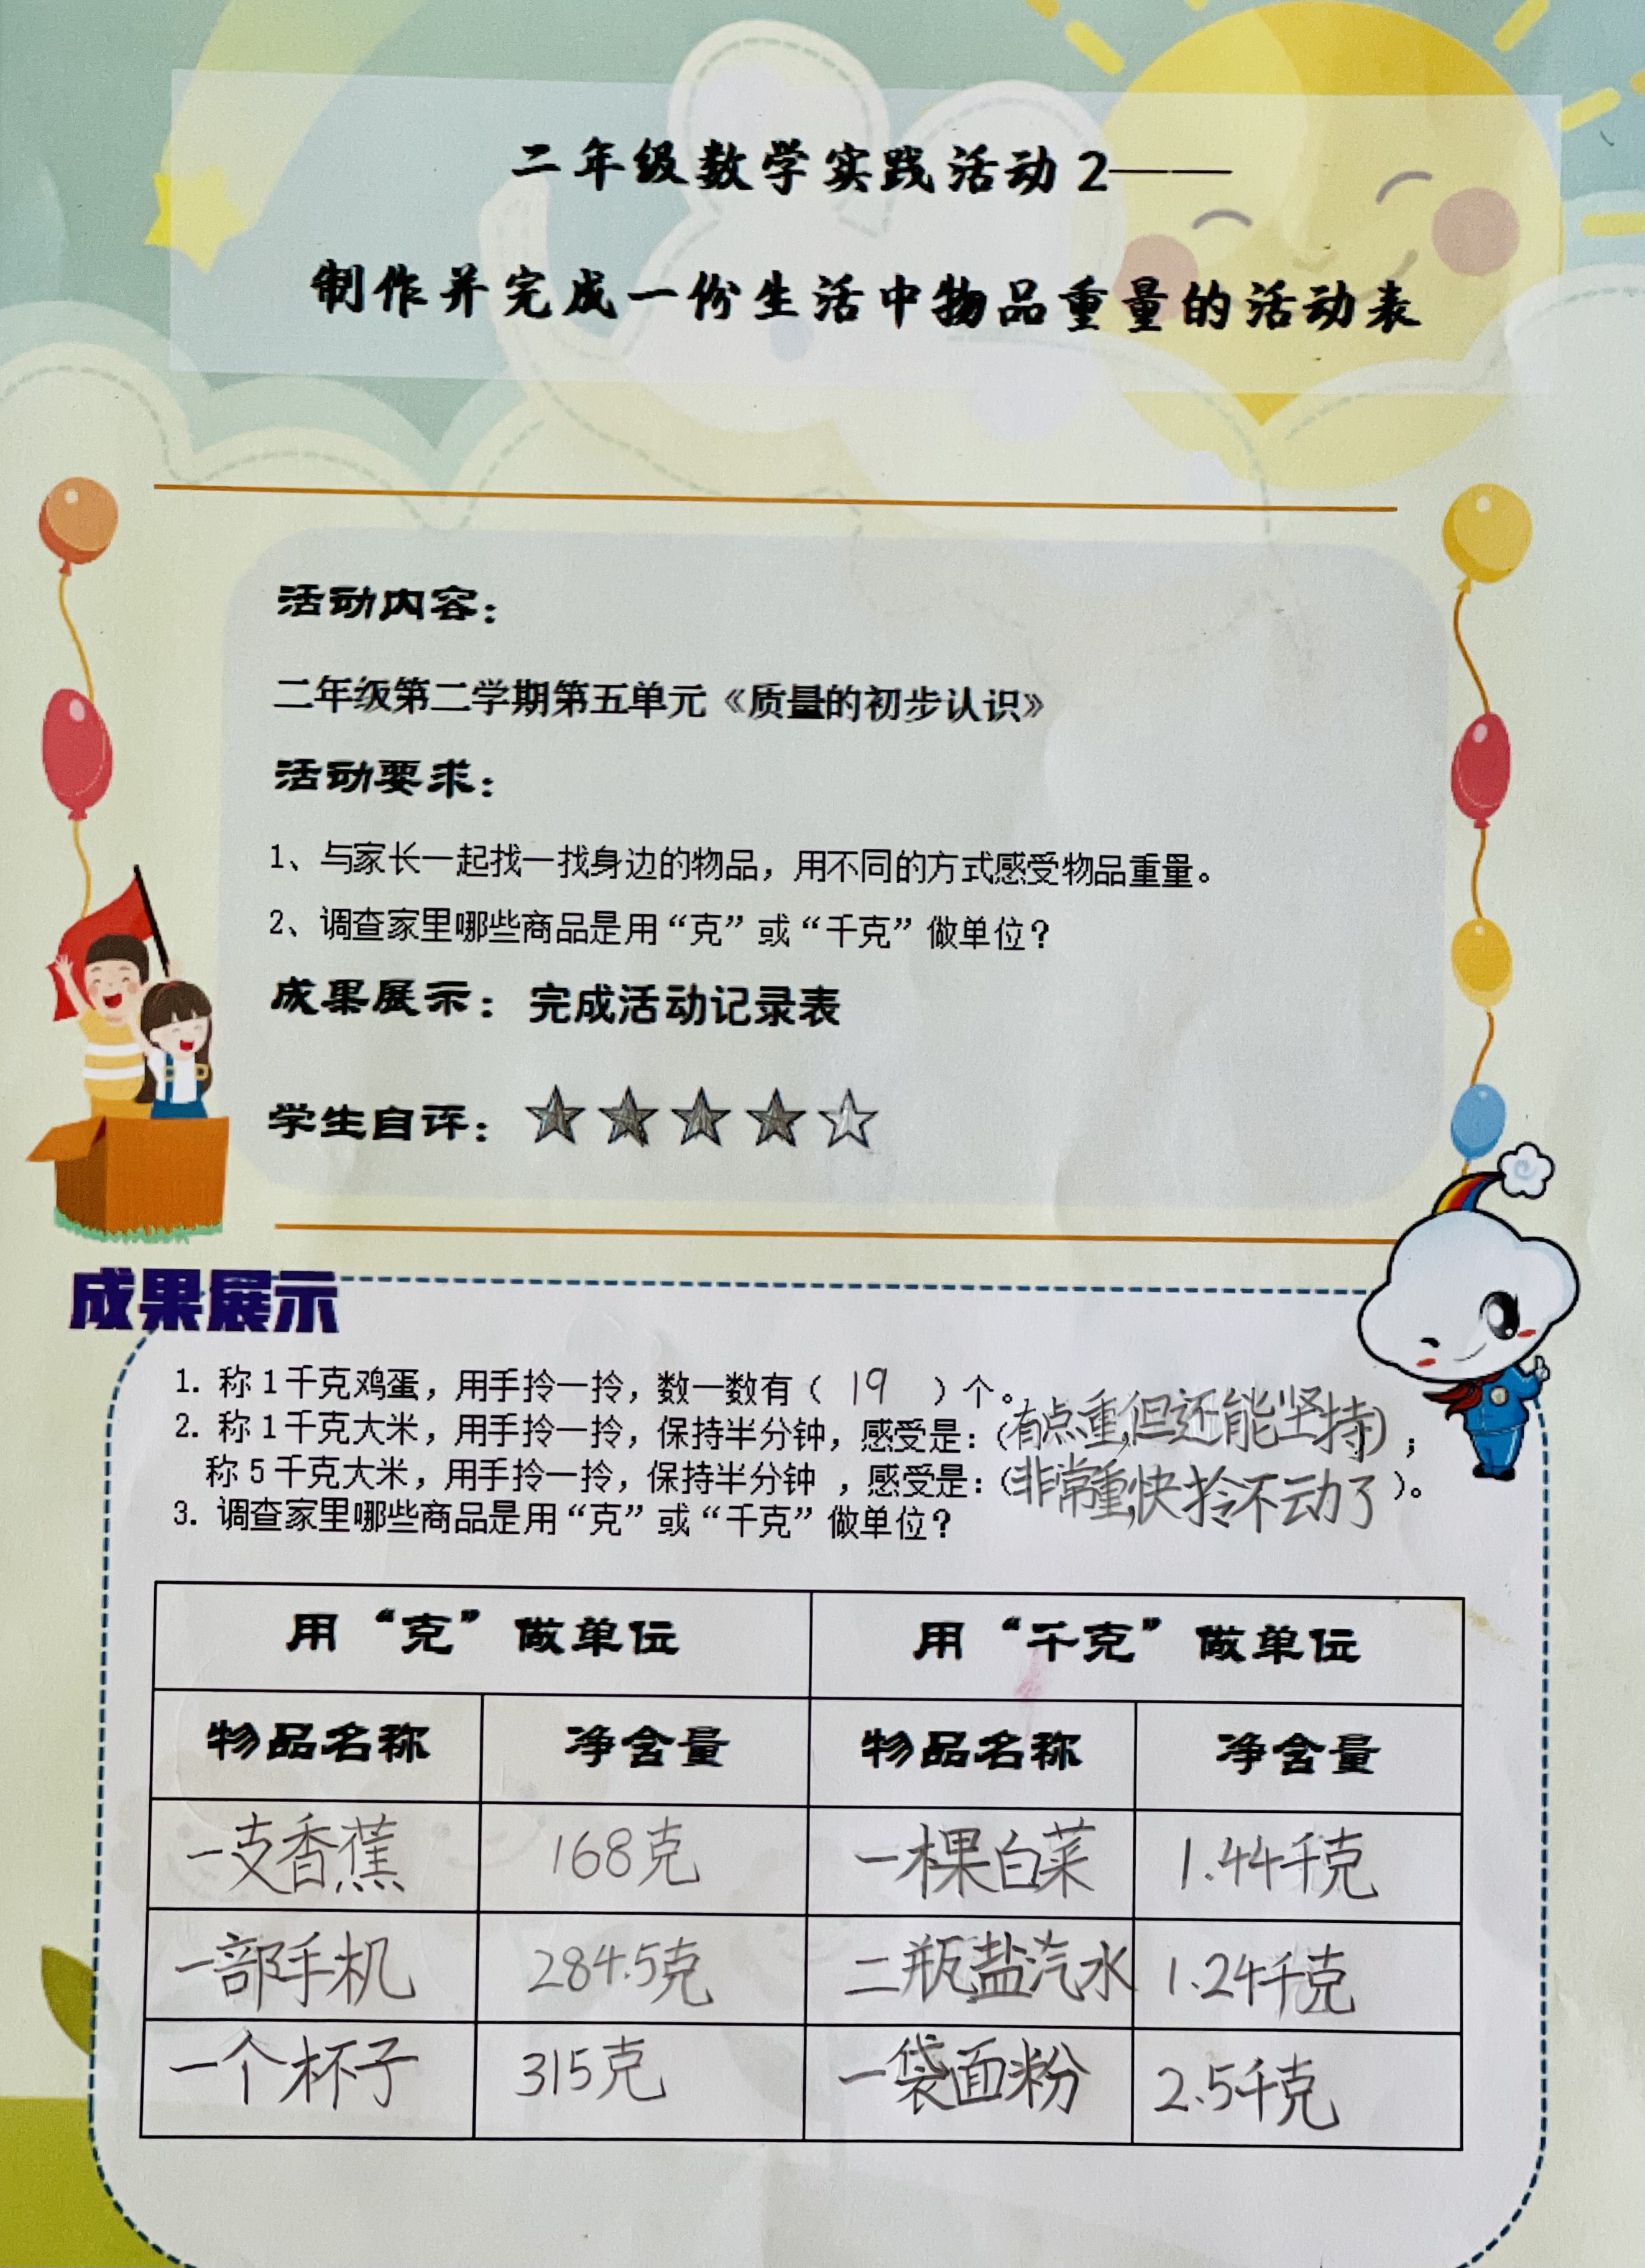 二年级数学实践活动2——
制作并完成一份生活中物品重量的活动表
活动内容：
二年级第二学期第五单元《质量的初步认识》
活动要求：
1、与家长一起找一找身边的物品，用不同的方式感受物品重量。
2、调查家里哪些商品是用“克”或“千克”做单位？
成果展示：完成活动记录表
学生自评：★★★★☆
成果展示
1. 称1千克鸡蛋，用手拎一拎，数一数有（ 19 ）个。
2. 称1千克大米，用手拎一拎，保持半分钟，感受是：(有点重,但还能坚持)；
称5千克大米，用手拎一拎，保持半分钟，感受是：(非常重,快拎不动了)。
3. 调查家里哪些商品是用“克”或“千克”做单位？
用“克”做单位 用“千克”做单位
物品名称 净含量 物品名称 净含量
一支香蕉 168克 一棵白菜 1.44千克
一部手机 284.5克 二瓶盐汽水 1.24千克
一个杯子 315克 一袋面粉 2.5千克